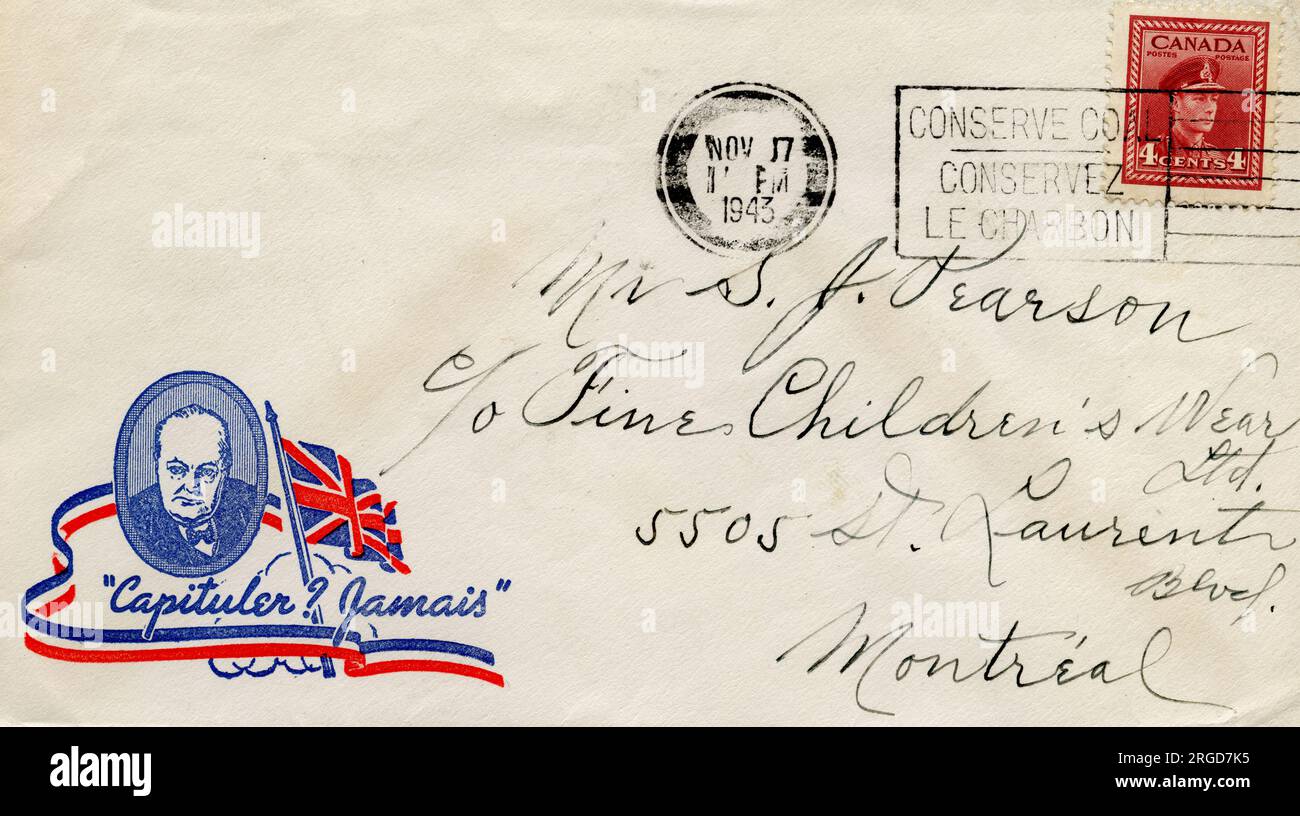 CANADA
POSTES POSTAGE
4 CENTS 4
NOV 17
PM
1943
CONSERVE COAL
CONSERVEZ
LE CHARBON
Mr S. J. Pearson
c/o Fine Children's Wear
Ltd.
5505 St. Laurent
Blvd.
Montréal
"Capituler? Jamais"
alamy
Image ID: 2RGD7K5
www.alamy.com